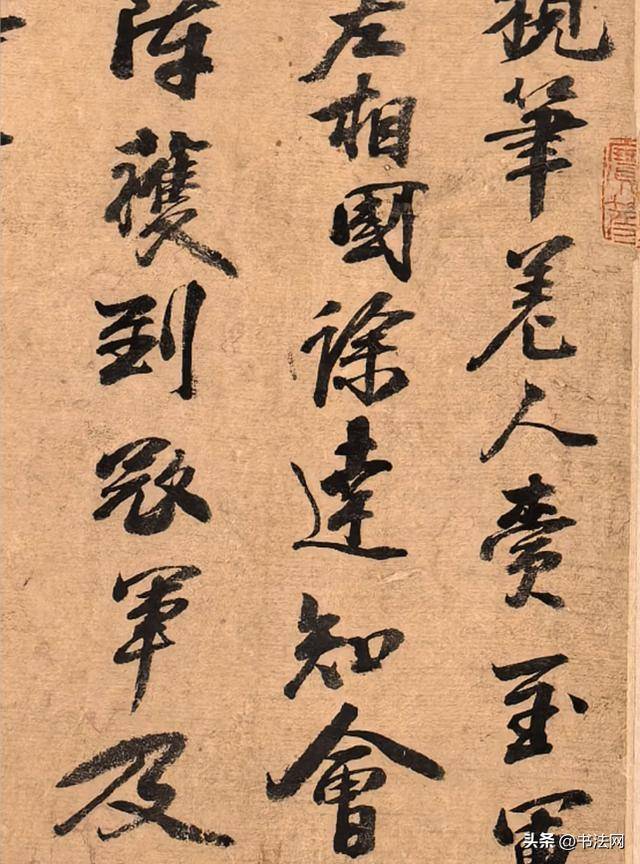 筆差人賫至軍
左相國徐達知會
陣獲到寇軍及
头条 @书法网